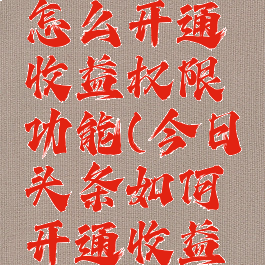 怎么开通
收益权限
功能(今日
头条如何
开通收益